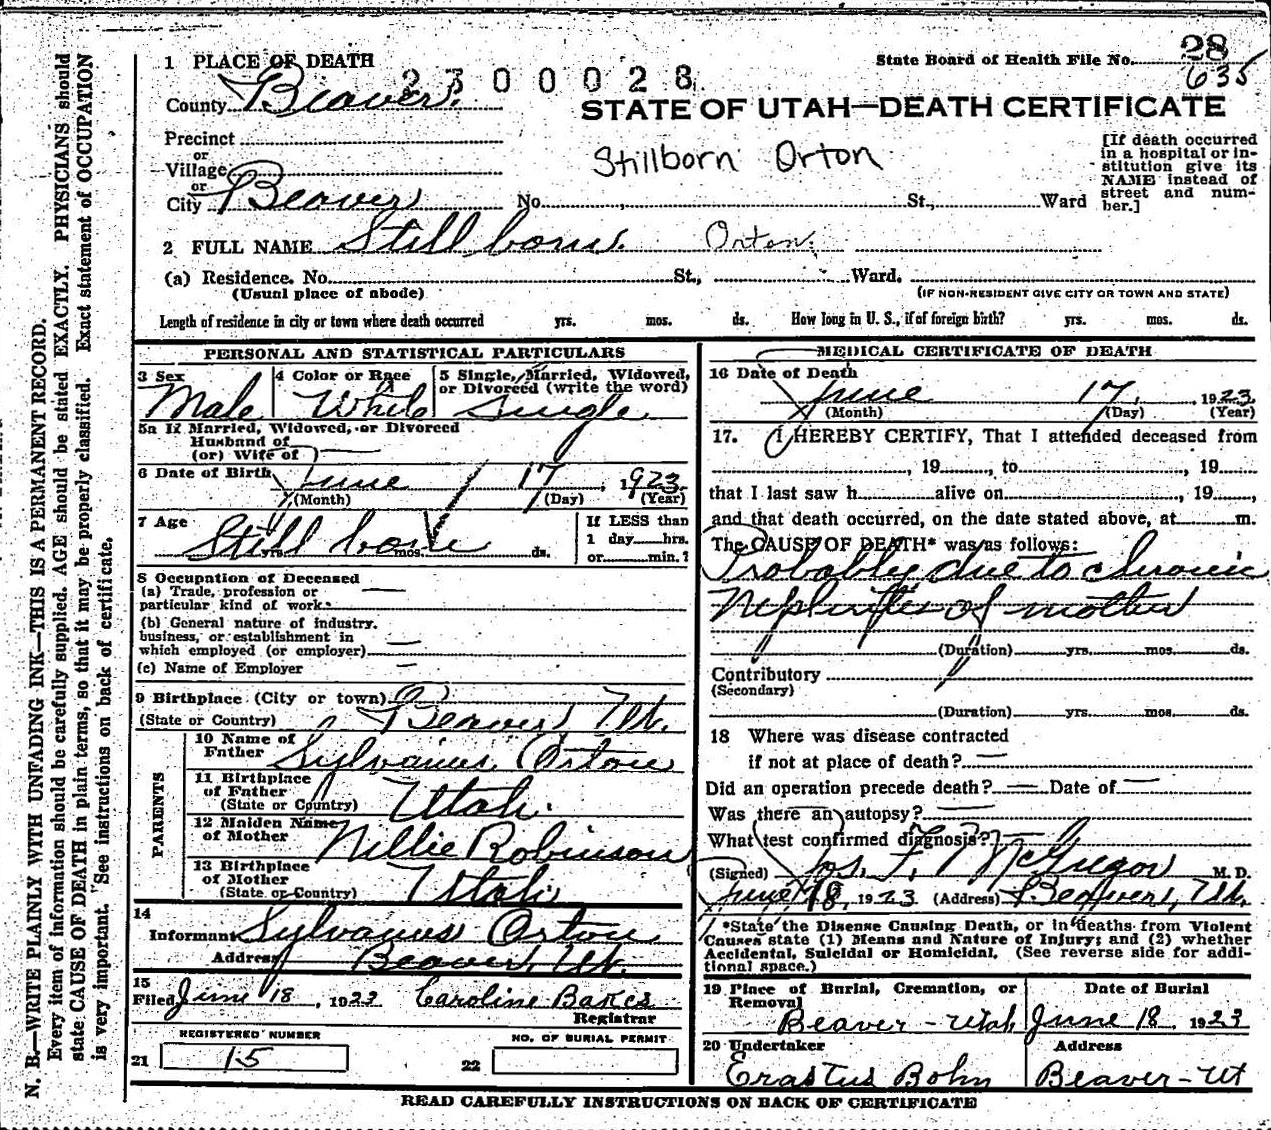 28
State Board of Health File No. 635
1 PLACE OF DEATH
2300028
County Beaver.
STATE OF UTAH—DEATH CERTIFICATE
Precinct
or
Village
or
City Beaver No. St., Ward
Stillborn Orton
[If death occurred
in a hospital or in-
stitution give its
NAME instead of
street and num-
ber.]
2 FULL NAME Still born. Orton.
(a) Residence. No. St., Ward.
(Usual place of abode) (IF NON-RESIDENT GIVE CITY OR TOWN AND STATE)
Length of residence in city or town where death occurred yrs. mos. ds. How long in U. S., if of foreign birth? yrs. mos. ds.
PERSONAL AND STATISTICAL PARTICULARS
3 Sex Male
4 Color or Race White
5 Single, Married, Widowed,
or Divorced (write the word)
Single
5a If Married, Widowed, or Divorced
Husband of
(or) Wife of
6 Date of Birth June 17, 1923
(Month) (Day) (Year)
7 Age Still born
yrs. mos. ds.
If LESS than
1 day hrs.
or min.?
8 Occupation of Deceased
(a) Trade, profession or
particular kind of work
(b) General nature of industry,
business, or establishment in
which employed (or employer)
(c) Name of Employer
9 Birthplace (City or town)
(State or Country) Beaver, Ut.
PARENTS
10 Name of
Father Sylvanus Orton
11 Birthplace
of Father
(State or Country) Utah.
12 Maiden Name
of Mother Nillie Robinson
13 Birthplace
of Mother
(State or Country) Utah
14
Informant Sylvanus Orton
Address Beaver, Ut.
15
Filed June 18, 1923 Caroline Bakes
Registrar
REGISTERED NUMBER
21 15
NO. OF BURIAL PERMIT
22
MEDICAL CERTIFICATE OF DEATH
16 Date of Death
June 17, 1923
(Month) (Day) (Year)
17. I HEREBY CERTIFY, That I attended deceased from
, 19 , to , 19
that I last saw h alive on , 19 ,
and that death occurred, on the date stated above, at m.
The CAUSE OF DEATH* was as follows:
Probably due to chronic
Nephrites of mother
(Duration) yrs. mos. ds.
Contributory
(Secondary)
(Duration) yrs. mos. ds.
18 Where was disease contracted
if not at place of death?
Did an operation precede death? Date of
Was there an autopsy?
What test confirmed diagnosis?
(Signed) Jos. F. McGregor M. D.
June 18, 1923 (Address) Beaver, Ut.
*State the Disease Causing Death, or in deaths from Violent
Causes state (1) Means and Nature of Injury; and (2) whether
Accidental, Suicidal or Homicidal. (See reverse side for addi-
tional space.)
19 Place of Burial, Cremation, or
Removal
Beaver - Utah
Date of Burial
June 18 1923
20 Undertaker
Erastus Bohn
Address
Beaver - Ut
READ CAREFULLY INSTRUCTIONS ON BACK OF CERTIFICATE
N. B.—WRITE PLAINLY WITH UNFADING INK—THIS IS A PERMANENT RECORD.
Every item of information should be carefully supplied. AGE should be stated EXACTLY. PHYSICIANS should
state CAUSE OF DEATH in plain terms, so that it may be properly classified. Exact statement of OCCUPATION
is very important. See instructions on back of certificate.